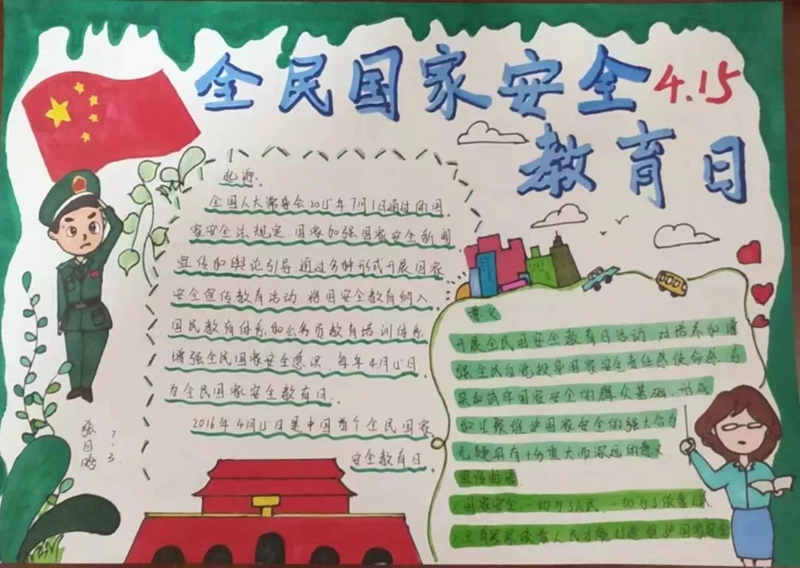 全民国家安全 4.15
教育日
起源:
全国人大常委会2015年7月1日通过的国
家安全法规定,国家加强国家安全新闻
宣传和舆论引导,通过多种形式开展国家
安全宣传教育活动,将国安全教育纳入
国民教育体系和公务员教育培训体系
增强全民国家安全意识,每年4月15日
为全民国家安全教育日。
2016年4月15日是中国首个全民国家
安全教育日.
意义
开展全民国安全教育日活动,对培养和增
强全民自觉投身国家安全责任
国家安全的群众基础,形成
维护国家安全的强大合力
无疑具有十分重大而深远的意义
国家安全一切为了人民,一切
人民才能 维护国家安全
7.3